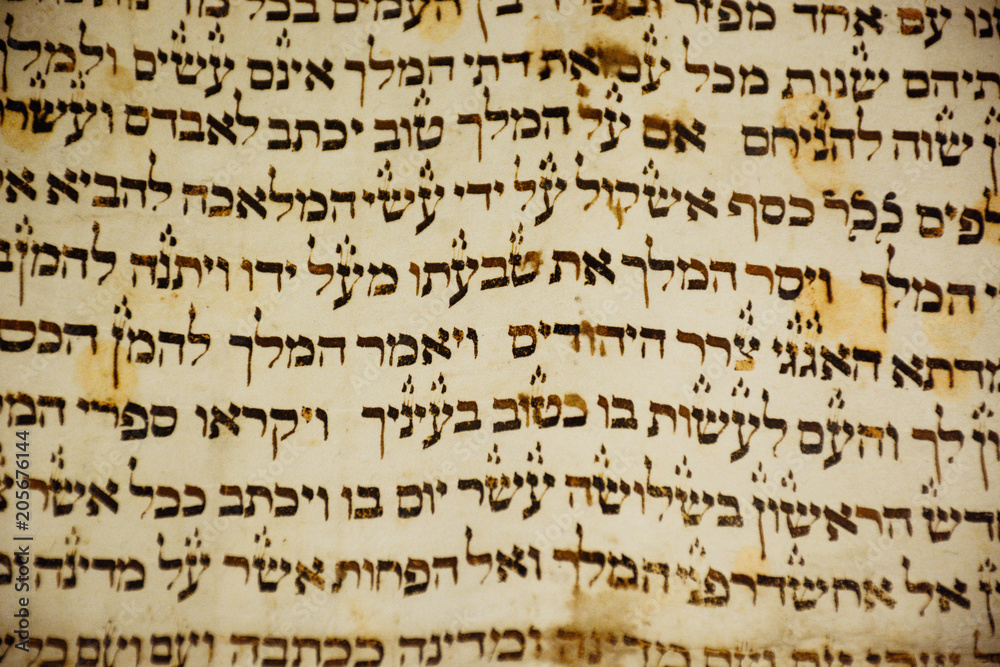 ישנו עם אחד מפזר ומפרד בין העמים בכל
ודתיהם שנות מכל עם ואת דתי המלך אינם עשים ולמלך
אין שוה להניחם אם על המלך טוב יכתב לאבדם ועשרת
אלפים ככר כסף אשקול על ידי עשי המלאכה להביא אל
המלך ויסר המלך את טבעתו מעל ידו ויתנה להמן
המדתא האגגי צרר היהודים ויאמר המלך להמן הכסף
נתון לך והעם לעשות בו כטוב בעיניך ויקראו ספרי המלך
בחדש הראשון בשלושה עשר יום בו ויכתב ככל אשר
אל אחשדרפני המלך ואל הפחות אשר על מדינה
מדינה ומדינה ככתבה ועם ועם
Adobe Stock | #205676144